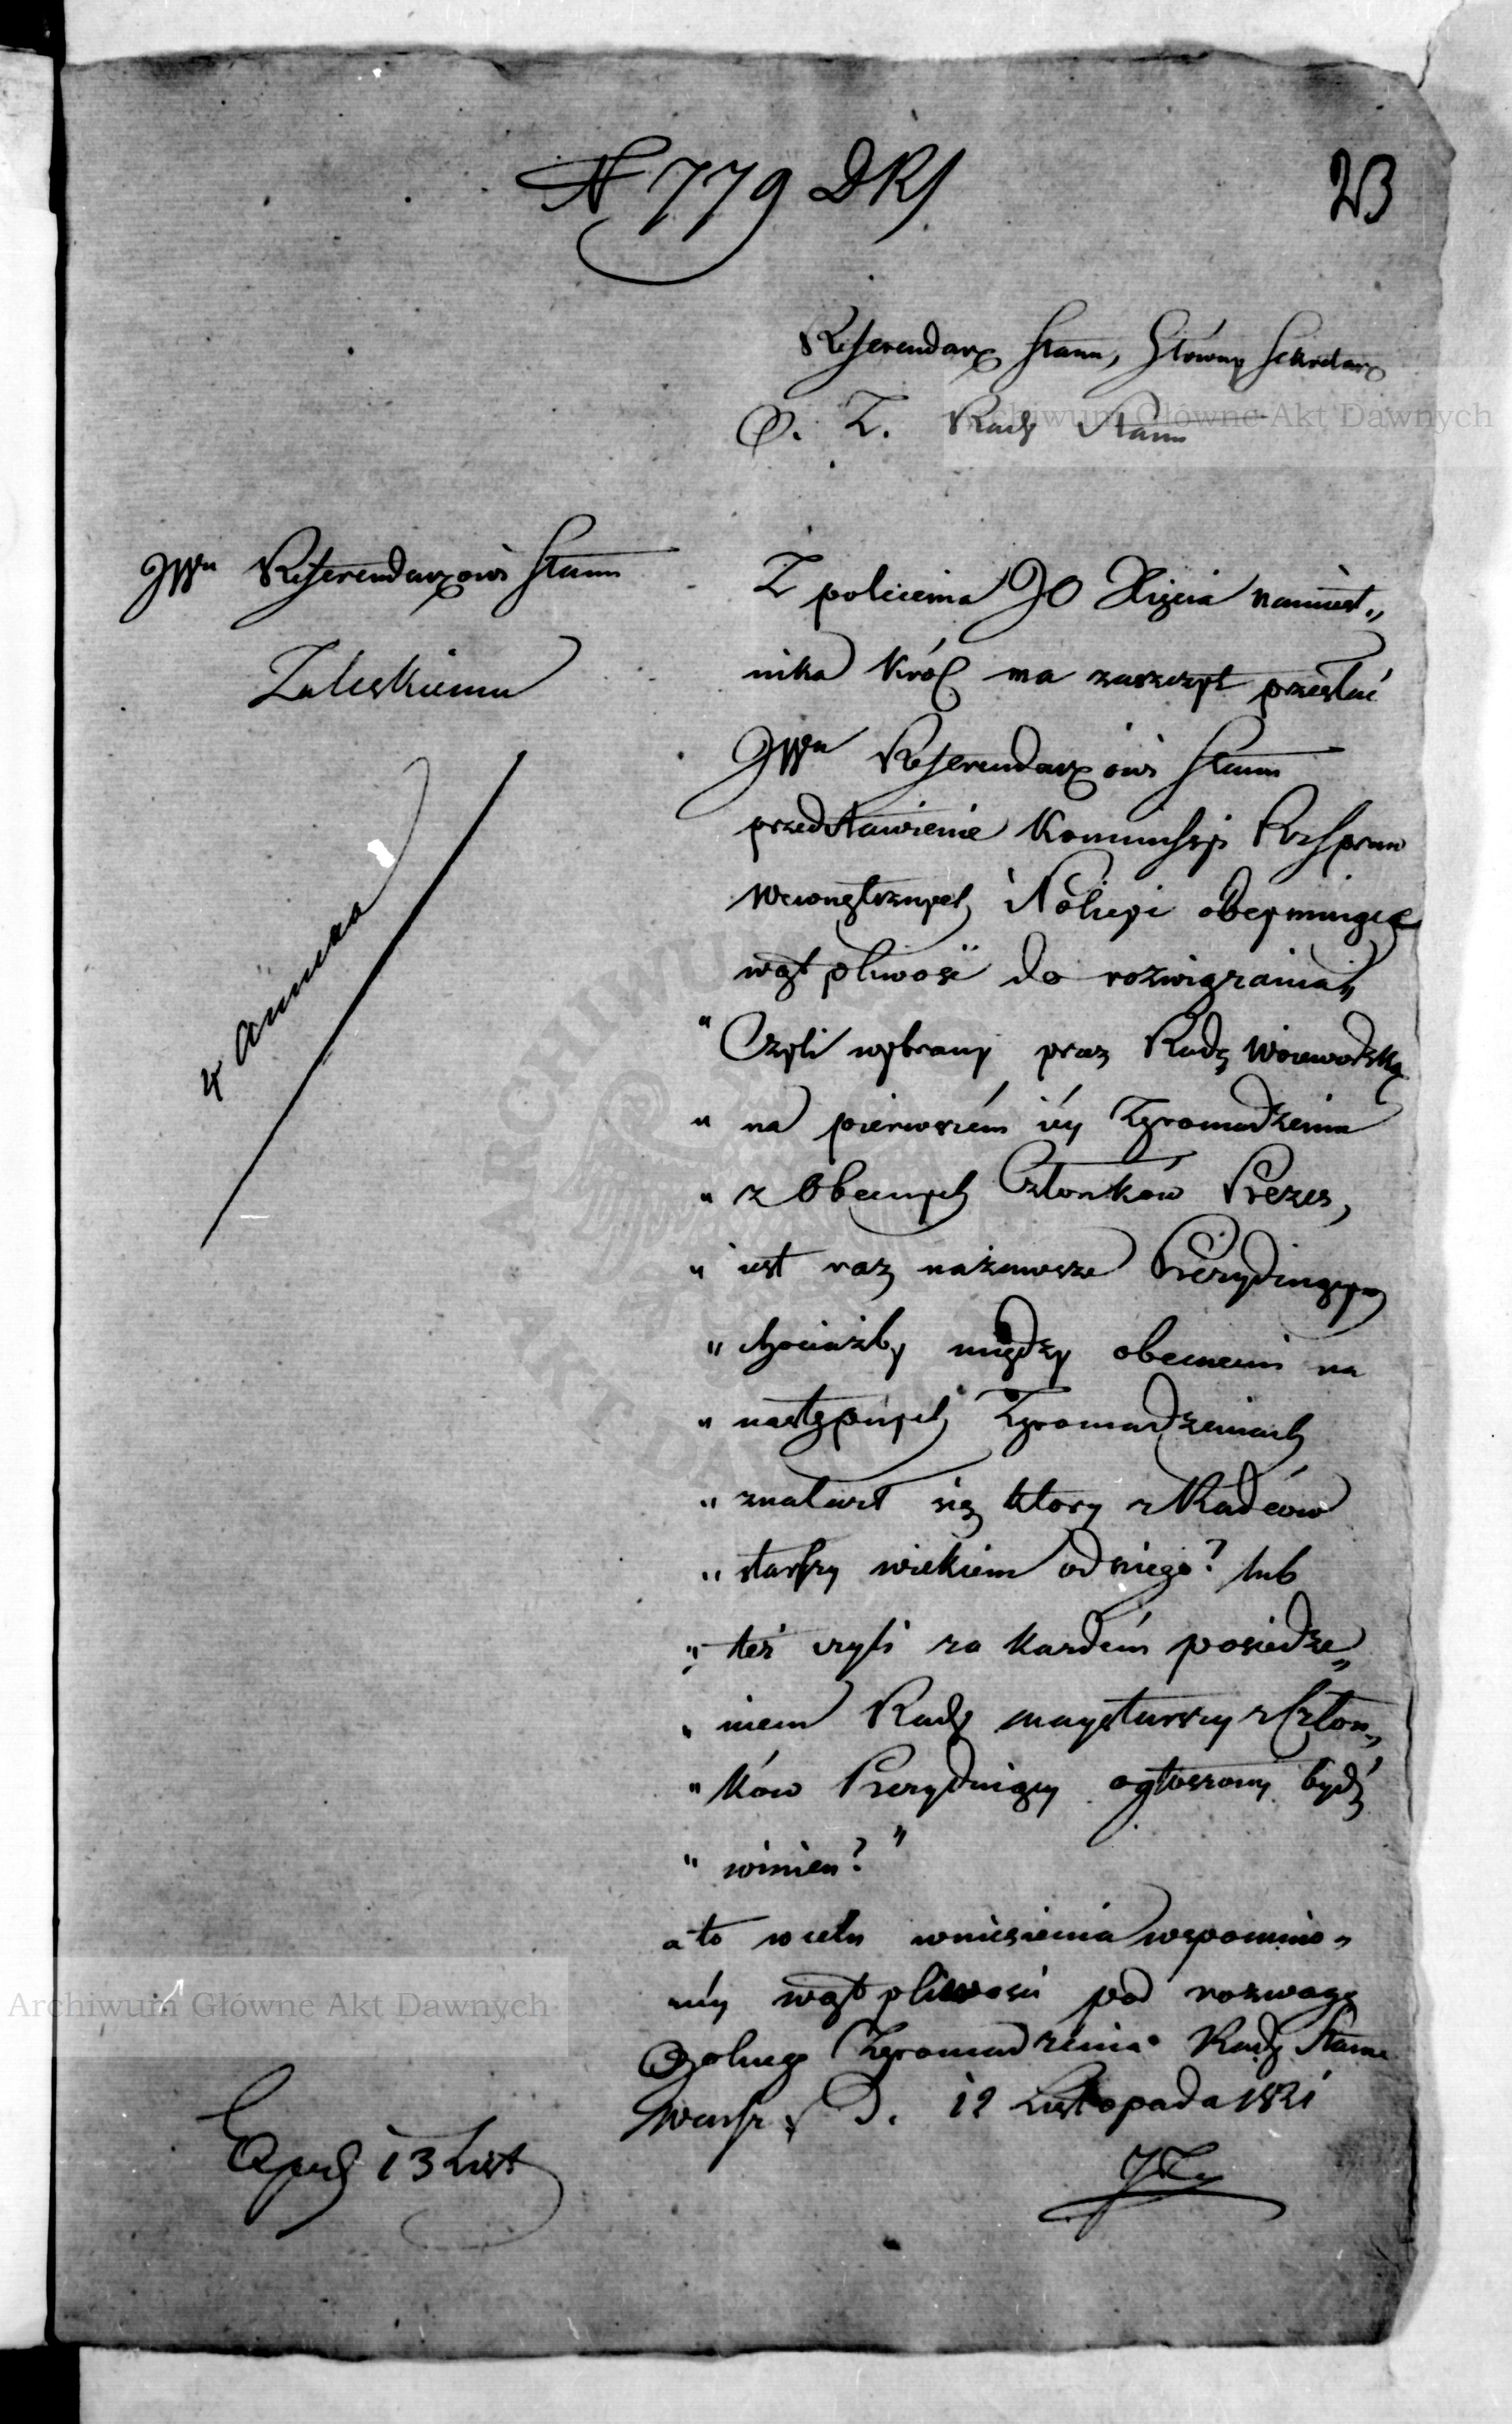 N 779 DRS
23
Referendarz Stanu, Główny Sekretarz
O. Z. Rady Stanu
JWu Referendarzowi Stanu
Zaleskiemu
z annexa
Z polecenia JO Xięcia Namiest„
nika Król ma zaszczyt przesłać
JWu Referendarzowi Stanu
przedstawienie Kommissyi Rz Spraw
Wewnętrznych i Policyi obeymuiące
wątpliwość do rozwiązania„
"Czyli wybrany przez Radę Woiewódzką
" na pierwszém iéy Zgromadzeniu
" z obecnych Członków Prezes,
" iest raz nazawsze Prezyduiącym
" chociażby między obecnemi na
" następnych Zgromadzeniach
" znalazł się który z Radców
" starszy wiekiem od niego? lub
" też czyli za każdém posiedze„
" niem Rady naystarszy z Człon„
" ków Prezyduiący ogłoszony bydź
" winien?"
a to w celu wniesienia wspomnio„
néy wątpliwości pod rozwagę
Ogólnego Zgromadzenia Rady Stanu
w Warsz. D. 12 Listopada 1821
Exped 13 List